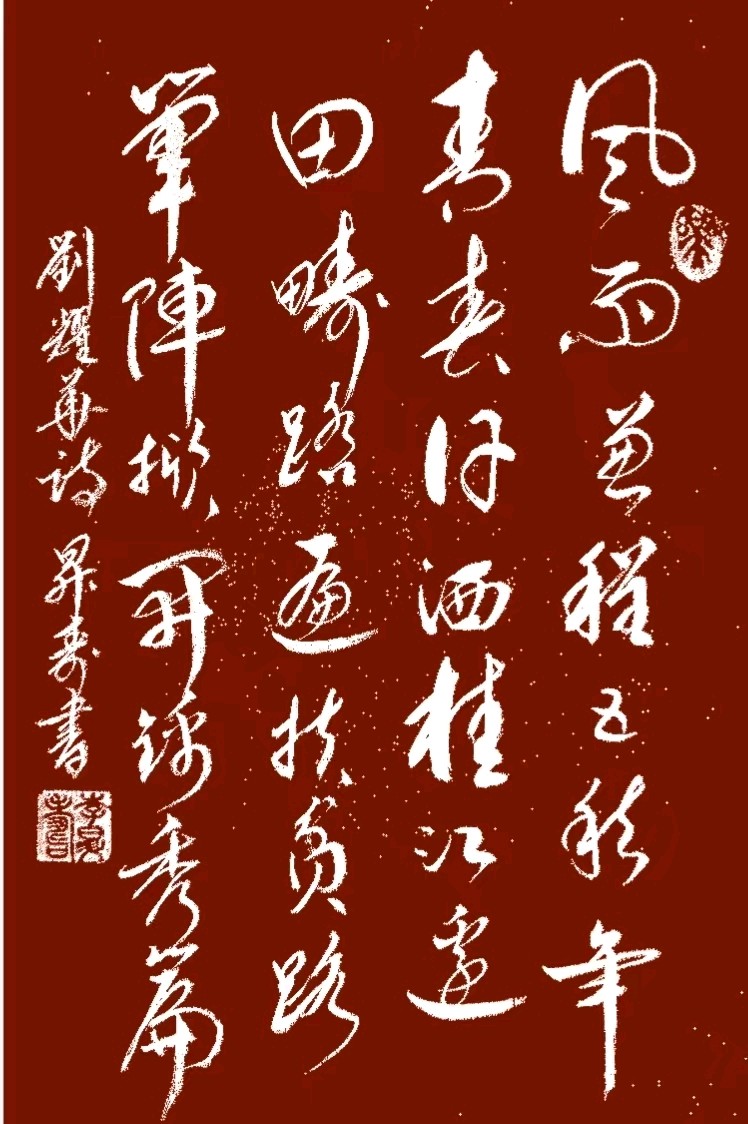 風雨兼程五年
青春汗洒桂江邊
田疇踏遍扶貧路
筆陣掀開錦秀篇
劉耀華詩 昇壽書